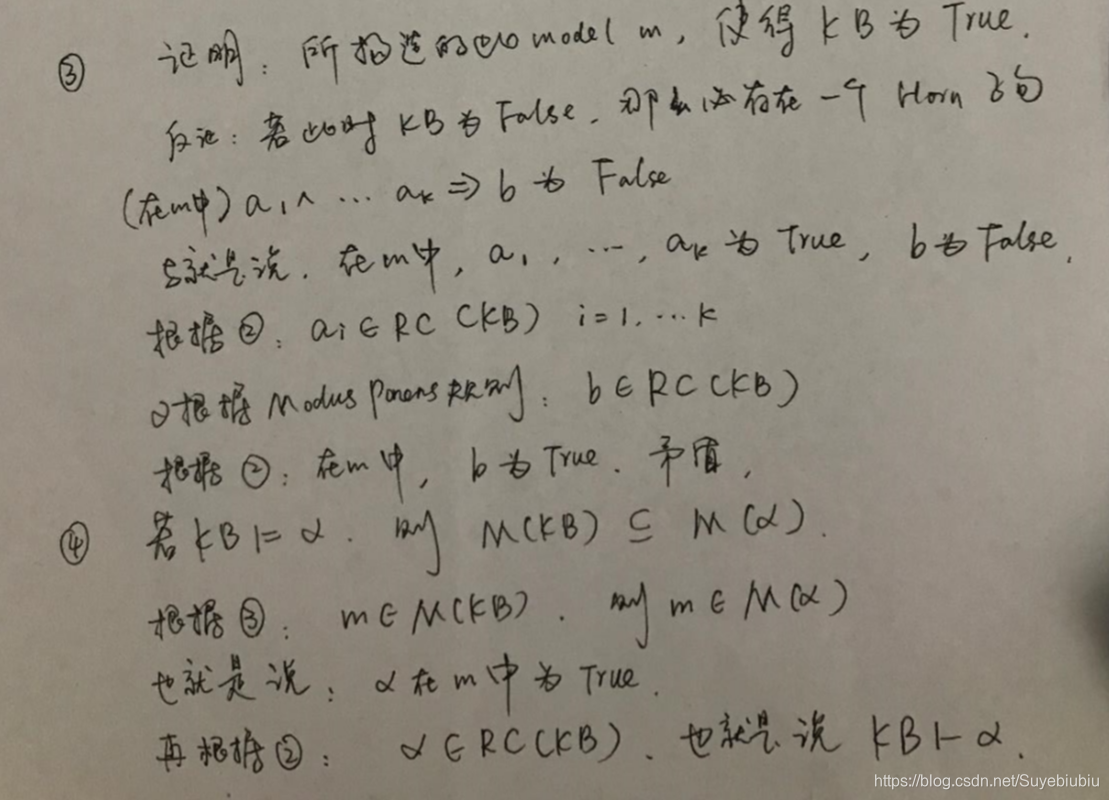 ③ 证明：所构造的此 model m，使得 KB 为 True．
反证：若此时 KB 为 False．那么必存在一个 Horn 子句
(在m中) a₁∧ ⋯ aₖ ⇒ b 为 False
也就是说．在m中，a₁，⋯，aₖ 为 True，b为False．
根据②：aᵢ∈RC(KB) i=1．⋯k
又根据 Modus Ponens 规则：b∈RC(KB)
根据②：在m中，b为True．矛盾，
④ 若KB⊨α．则 M(KB) ⊆ M(α)．
根据③：m∈M(KB)．则 m∈M(α)
也就是说：α在m中为True．
再根据②：α∈RC(KB)．也就是说 KB⊢α．
https://blog.csdn.net/Suyebiubiu